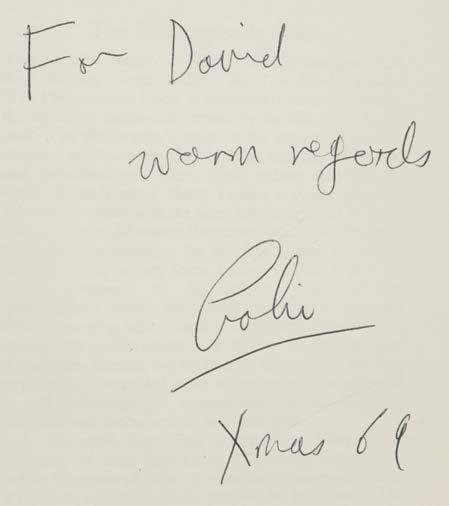 For David
warm regards
Colin
Xmas 69